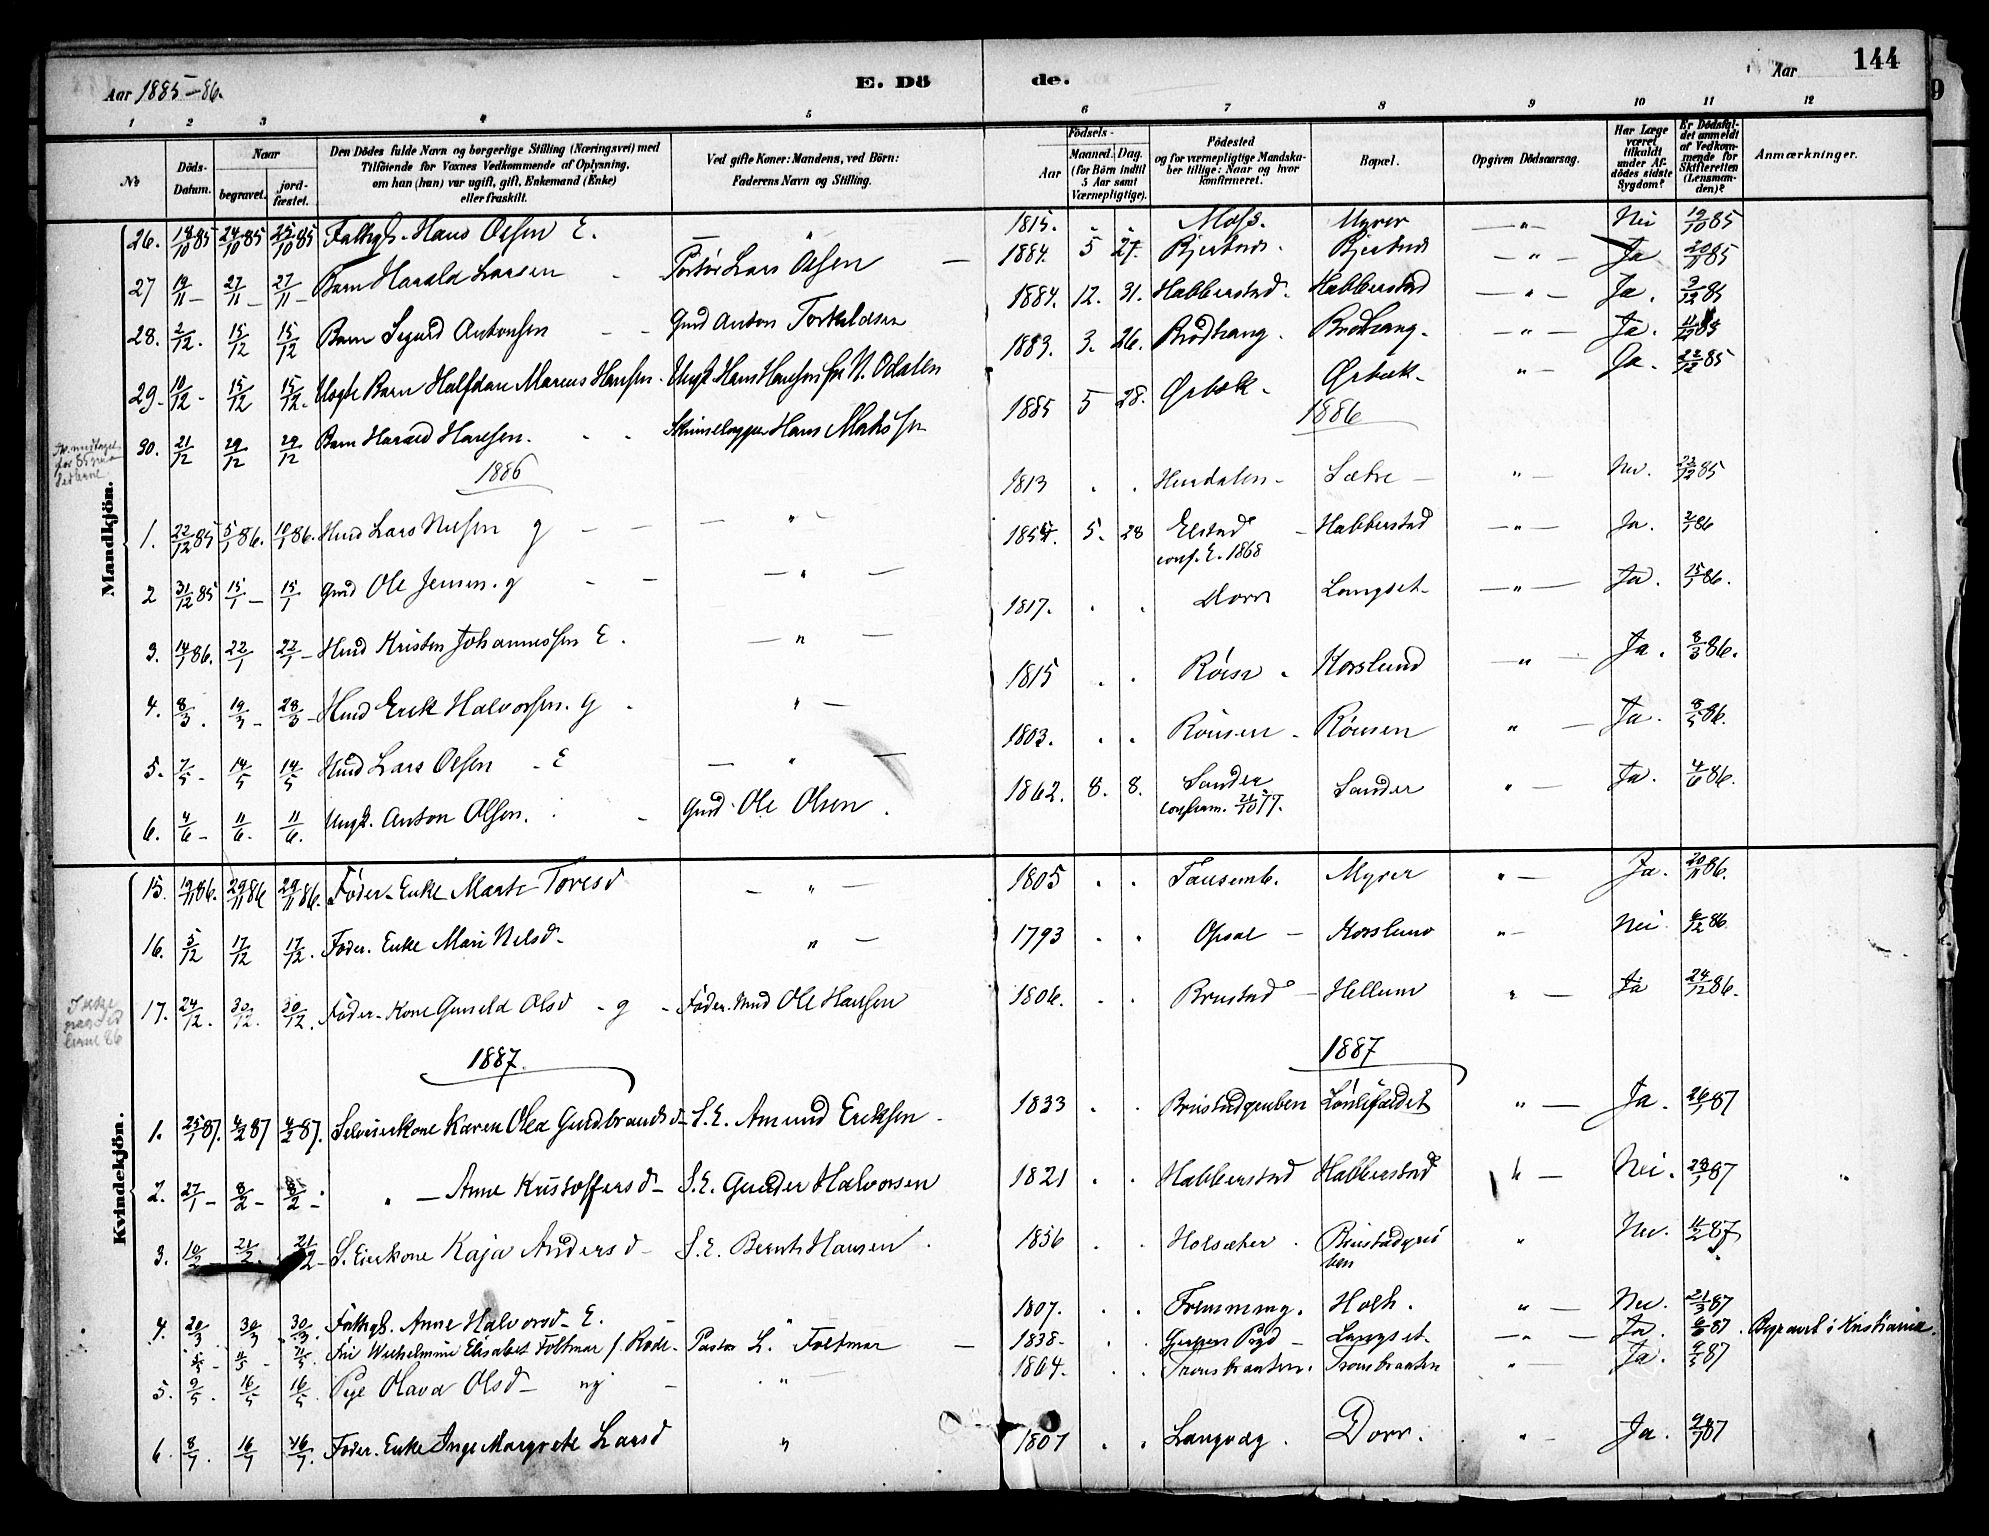 Aar 1885-86. E. Dö de. Aar 144
1 2 3 4 5 6 7 8 9 10 11 12
No Döds-Datum. Naar begravet. jord-fæstet. Den Dödes fulde Navn og borgerlige Stilling (Næringsvei) med Tilföiende for Voxnes Vedkommende af Oplysning, om han (hun) var ugift, gift, Enkemand (Enke) eller fraskilt. Ved gifte Koner: Mandens, ved Börn: Faderens Navn og Stilling. Födsels- Aar Maaned. Dag. (for Börn indtil 5 Aar samt Værnepligtige). Födested og for værnepligtige Mandska-ber tillige: Naar og hvor konfirmeret. Bopæl. Opgiven Dödsaarsag. Har Læge været tilkaldt under Af-dödes sidste Sygdom? Er Dödsfal-det anmeldt af Vedkom-mende for Skifteretten (Lensman-den)? Anmærkninger.
Mandkjön.
26. 18/10 85 24/10 85 25/10 85 Fattigl. Hans Olsen E. " 1815. Moss. Myrer " Nei 19/10 85
27 19/11 27/11 27/11 Barn Harald Larsen Lars Olsen 1884. 5 27. Bjertnes Bjertnes " Ja 20/11 85
28. 2/12. 15/12 15/12 Barn Sigurd Antonsen Gmd Anton Torkildsen 1884. 12. 31. Habberstad. Habberstad " Ja. 3/12 85
29. 10/12 15/12 15/12. Barn Halfdan Marius Hansen. Ungk. Hans Hansen fra N. Odalen 1883. 3. 26. Brodhang. Brodhang. " Ja. 11/12 85
30. 21/12 29/12 29/12 Barn Harald Hansen. Skindlapper Hans Mathisen 1885 5 28. Ørbæk. Ørbæk. " Ja. 22/12 85
1886 1886
1. 22/12 85 5/1 86. 10/1 86. Hmd Lars Nilsen g " 1813 Hurdalen Sætre " Nei. 23/12 85
2 31/12 85 15/1 15/1 Gmd Ole Jensen. g " 1854. 5. 28 Elstad conf. E. 1868 Habberstad " Ja. 2/1 86
3. 14/1 86. 22/1 22/1 Hmd Kristen Johannessen E. " 1817. Dorr Langset " Ja. 15/1 86.
4. 8/3. 19/3 28/3 Hmd Erik Halvorsen. g " 1815 Røise. Korslund " Ja. 8/3 86.
5. 7/5 14/5 14/5 Hmd Lars Olsen E " 1803. Rønsen Rønsen " Ja. 8/5 86.
6. 4/6 11/6. 11/6. Ungk. Anton Olsen. Gmd. Ole Olsen. 1862. 8. 8. Sander confirm. 21/10 77. Sander " Ja. 4/6 86.
Kvindekjön.
15. 19/11 86. 29/11 86 29/11 86. Føder. Enke Marte Toresd " 1805 Tausemb. Myrer " Ja. 20/11 86.
16. 5/12 17/12 17/12. Føder. Enke Mari Nilsd. " 1793 Opsal Korslund " Nei. 6/12 86.
17. 24/12. 30/12. 30/12. Føder. Kone Gunild Olsd g Føder. Md Ole Hansen 1806. Brustad Hellum " Ja 24/12 86.
1887. 1887
1. 25/1 87. 4/2 87 4/2 87. Selveierkone Karen Olea Gudbrandsd S.E. Amund Eriksen. 1833 Brustadgruben " Ja. 26/1 87
2. 27/1 8/2 8/2 " Anne Kristoffersd S.E. Gunder Halvorsen 1821 Habberstad Habberstad " Nei. 28/1 87
3. 10/2 21/2. 21/2 S. Eierkone Kaja Andersd S.E. Bernt Hansen. 1836 Holsæter. " Nei. 11/2 87
4. 20/3. 30/3 30/3. Fattigl. Anne Halvorsd. E. " 1807. Fremming. Holth. " Nei. 21/3 87
Fru Wilhelmine Elisabet Foltmar f. Rode Pastor L. Foltmar 1838. Langset. " Ja. Begravet i Kristiania.
5. 9/5. 16/5 16/5 Pige Olava Olsd ug " 1864. Tronsbraaten. Tronsbraaten " Ja. 87
6. 8/7. 16/7 16/7. Føder. Enke Inge Margrete Larsd " 1807 Langvæg. Dorr. " Ja. 9/7 87